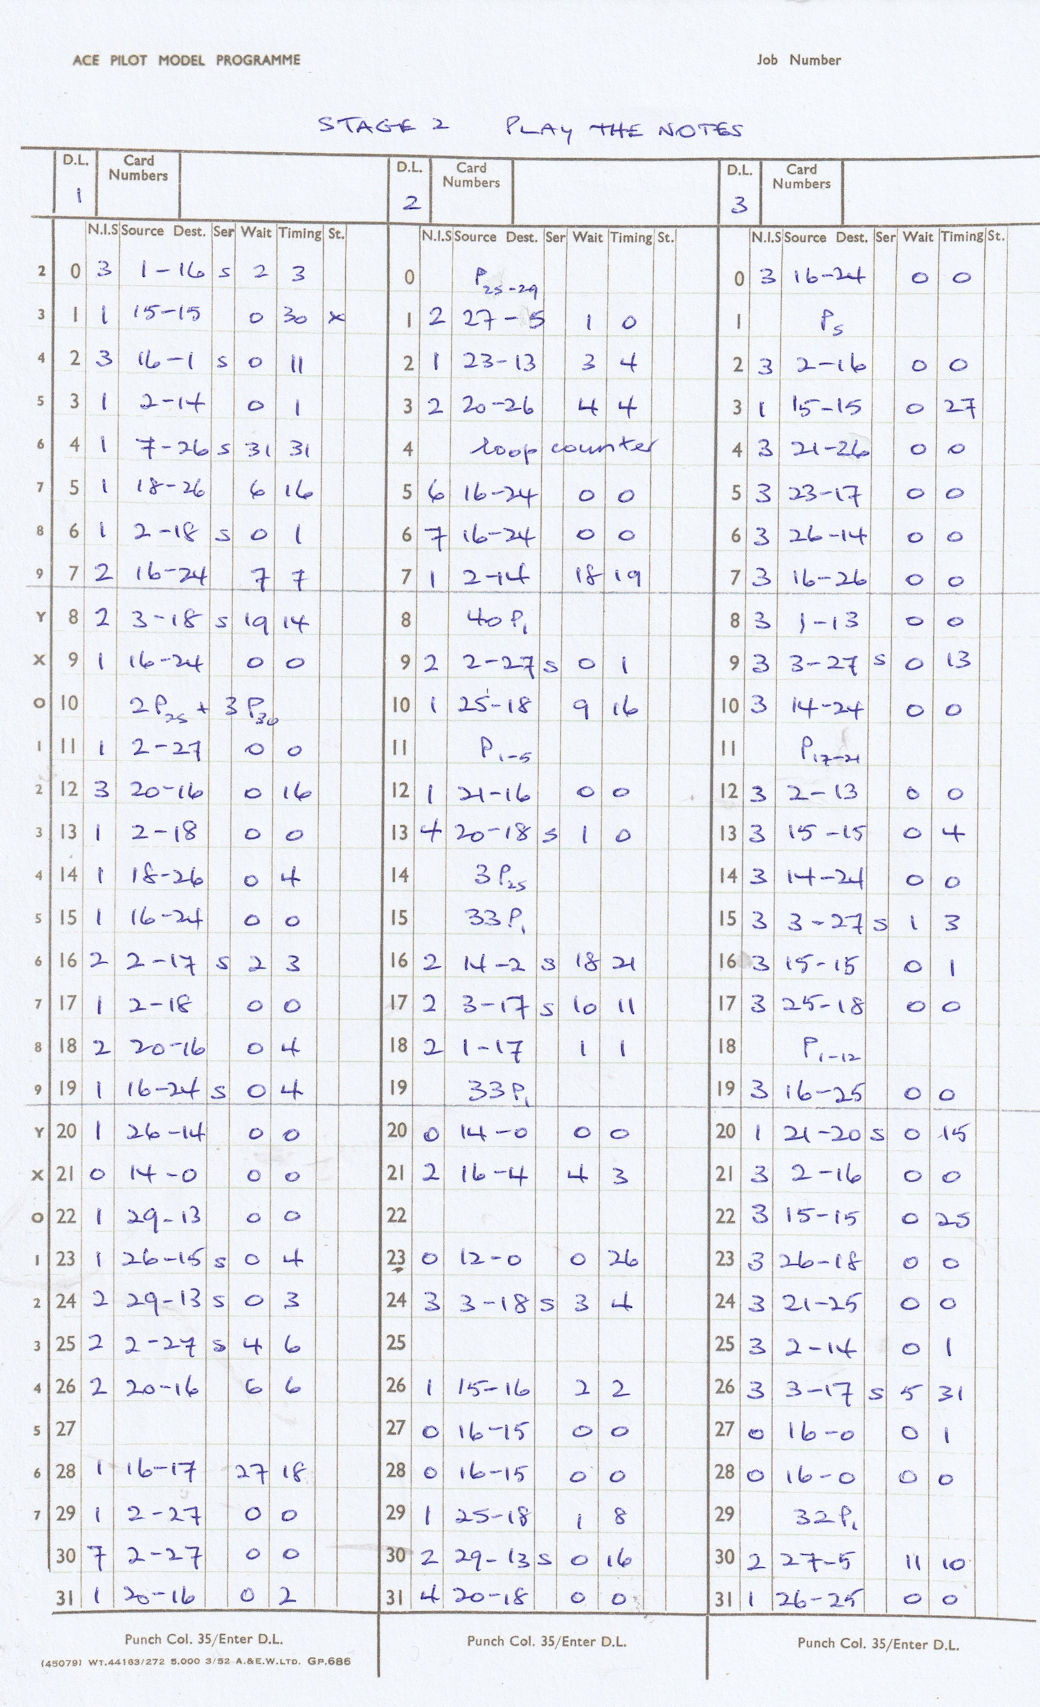 ACE PILOT MODEL PROGRAMME Job Number
STAGE 2 PLAY THE NOTES
D.L. Card Numbers D.L. Card Numbers D.L. Card Numbers
1 2 3
N.I.S Source Dest. Ser Wait Timing St. N.I.S Source Dest. Ser Wait Timing St. N.I.S Source Dest. Ser Wait Timing St.
2 0 3 1-16 s 2 3 0 P25-29 0 3 16-24 0 0
3 1 1 15-15 0 30 x 1 2 27-5 1 0 1 P5
4 2 3 16-1 s 0 11 2 1 23-13 3 4 2 3 2-16 0 0
5 3 1 2-14 0 1 3 2 20-26 4 4 3 1 15-15 0 27
6 4 1 7-26 s 31 31 4 loop counter 4 3 21-26 0 0
7 5 1 18-26 6 16 5 6 16-24 0 0 5 3 23-17 0 0
8 6 1 2-18 s 0 1 6 7 16-24 0 0 6 3 26-14 0 0
9 7 2 16-24 7 7 7 1 2-14 18 19 7 3 16-26 0 0
Y 8 2 3-18 s 19 14 8 40P1 8 3 1-13 0 0
X 9 1 16-24 0 0 9 2 2-27 s 0 1 9 3 3-27 s 0 13
O 10 2P25 + 3P30 10 1 25-18 9 16 10 3 14-24 0 0
1 11 1 2-27 0 0 11 P1-5 11 P17-21
2 12 3 20-16 0 16 12 1 21-16 0 0 12 3 2-13 0 0
3 13 1 2-18 0 0 13 4 20-18 s 1 0 13 3 15-15 0 4
4 14 1 18-26 0 4 14 3P25 14 3 14-24 0 0
5 15 1 16-24 0 0 15 33P1 15 3 3-27 s 1 3
6 16 2 2-17 s 2 3 16 2 14-2 s 18 21 16 3 15-15 0 1
7 17 1 2-18 0 0 17 2 3-17 s 10 11 17 3 25-18 0 0
8 18 2 20-16 0 4 18 2 1-17 1 1 18 P1-12
9 19 1 16-24 s 0 4 19 33P1 19 3 16-25 0 0
Y 20 1 26-14 0 0 20 0 14-0 0 0 20 1 21-20 s 0 15
X 21 0 14-0 0 0 21 2 16-4 4 3 21 3 2-16 0 0
O 22 1 29-13 0 0 22 22 3 15-15 0 25
1 23 1 26-15 s 0 4 23 0 12-0 0 26 23 3 26-18 0 0
2 24 2 29-13 s 0 3 24 3 3-18 s 3 4 24 3 21-25 0 0
3 25 2 2-27 s 4 6 25 25 3 2-14 0 1
4 26 2 20-16 6 6 26 1 15-16 2 2 26 3 3-17 s 5 31
5 27 27 0 16-15 0 0 27 0 16-0 0 1
6 28 1 16-17 27 18 28 0 16-15 0 0 28 0 16-0 0 0
7 29 1 2-27 0 0 29 1 25-18 1 8 29 32P1
30 7 2-27 0 0 30 2 29-13 s 0 16 30 2 27-5 11 10
31 1 20-16 0 2 31 4 20-18 0 0 31 1 26-25 0 0
Punch Col. 35/Enter D.L. Punch Col. 35/Enter D.L. Punch Col. 35/Enter D.L.
(45079) WT.44163/272 5.000 3/52 A.&E.W.LTD. GP.686